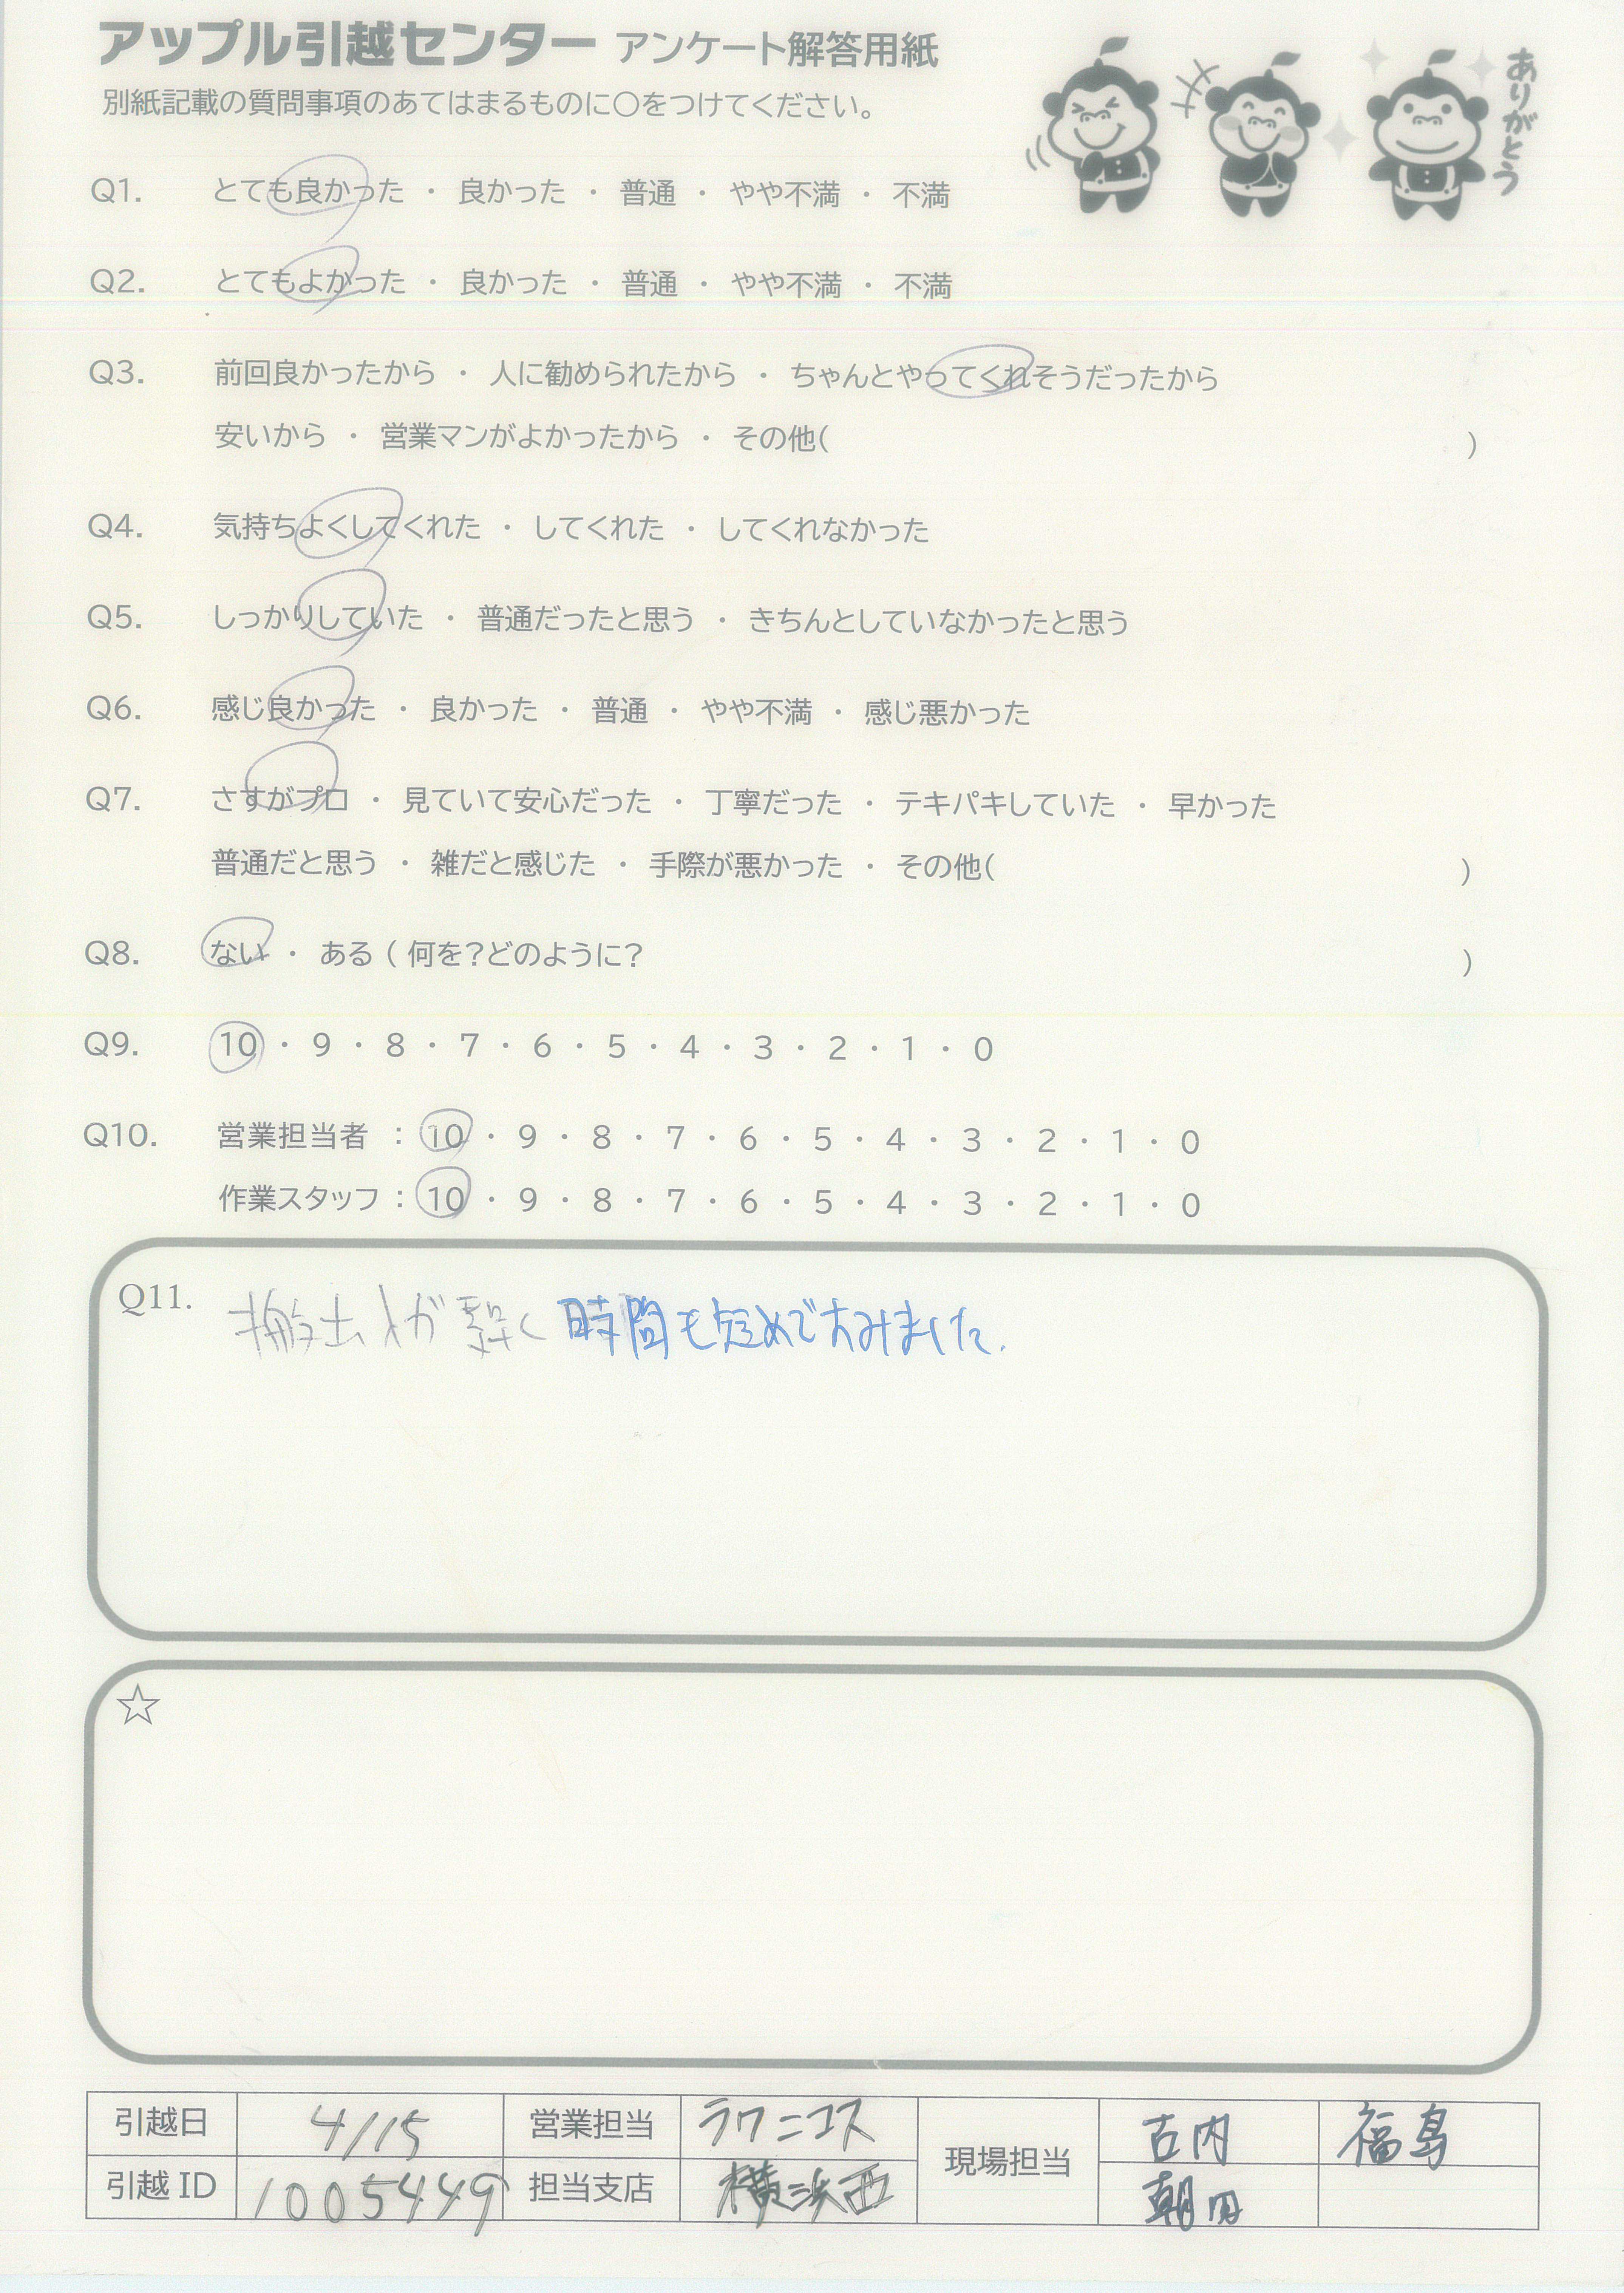 アップル引越センター アンケート解答用紙
別紙記載の質問事項のあてはまるものに○をつけてください。
ありがとう
Q1. とても良かった ・ 良かった ・ 普通 ・ やや不満 ・ 不満
Q2. とてもよかった ・ 良かった ・ 普通 ・ やや不満 ・ 不満
Q3. 前回良かったから ・ 人に勧められたから ・ ちゃんとやってくれそうだったから
安いから ・ 営業マンがよかったから ・ その他( )
Q4. 気持ちよくしてくれた ・ してくれた ・ してくれなかった
Q5. しっかりしていた ・ 普通だったと思う ・ きちんとしていなかったと思う
Q6. 感じ良かった ・ 良かった ・ 普通 ・ やや不満 ・ 感じ悪かった
Q7. さすがプロ ・ 見ていて安心だった ・ 丁寧だった ・ テキパキしていた ・ 早かった
普通だと思う ・ 雑だと感じた ・ 手際が悪かった ・ その他( )
Q8. ない ・ ある ( 何を?どのように? )
Q9. 10 ・ 9 ・ 8 ・ 7 ・ 6 ・ 5 ・ 4 ・ 3 ・ 2 ・ 1 ・ 0
Q10. 営業担当者 : 10 ・ 9 ・ 8 ・ 7 ・ 6 ・ 5 ・ 4 ・ 3 ・ 2 ・ 1 ・ 0
作業スタッフ : 10 ・ 9 ・ 8 ・ 7 ・ 6 ・ 5 ・ 4 ・ 3 ・ 2 ・ 1 ・ 0
Q11. 搬出入が 時間も短めですみました.
☆
引越日 4/15 営業担当 ラワニコス 現場担当 古内 福島
引越 ID 1005449 担当支店 横浜西 朝田